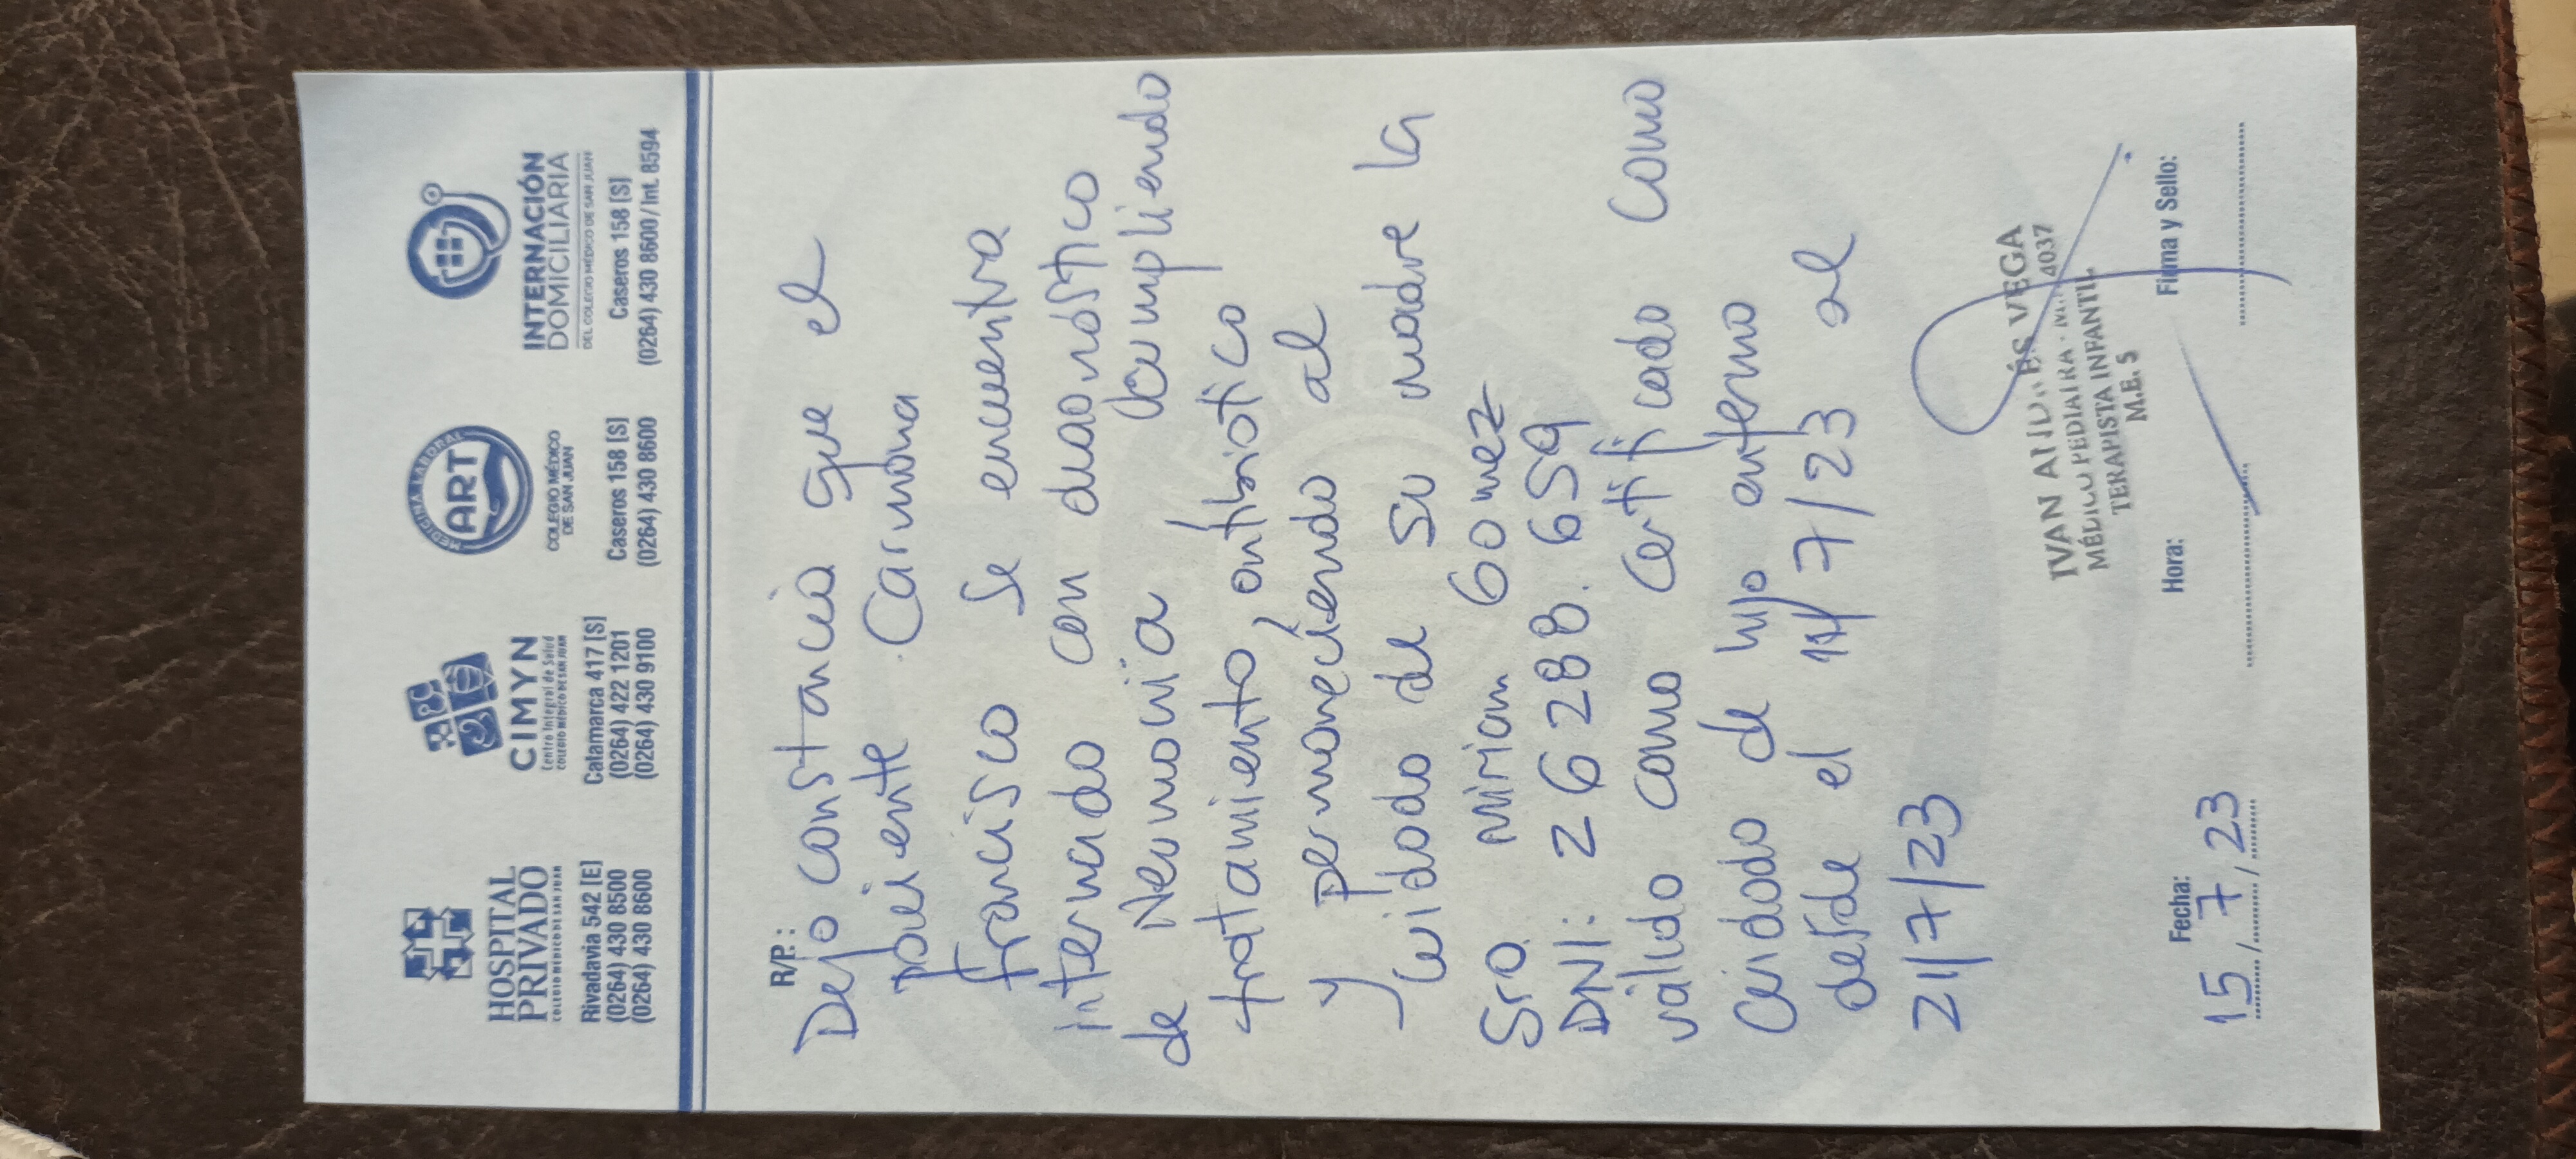 HOSPITAL
PRIVADO
COLEGIO MEDICO DE SAN JUAN
Rivadavia 542 [E]
(0264) 430 8500
(0264) 430 8600
CIMYN
Centro Integral de Salud
COLEGIO MÉDICO DE SAN JUAN
Catamarca 417 [S]
(0264) 422 1201
(0264) 430 9100
MEDICINA LABORAL
ART
COLEGIO MÉDICO
DE SAN JUAN
Caseros 158 [S]
(0264) 430 8600
INTERNACIÓN
DOMICILIARIA
DEL COLEGIO MÉDICO DE SAN JUAN
Caseros 158 [S]
(0264) 430 8600 / Int. 8594
R/P.:
Dejo constancia que el
paciente Carmona
Francisco se encuentra
internado con diagnóstico
de Neumonia cumpliendo
tratamiento antibiotico
y permaneciendo al
cuidado de su madre la
Sra Miriam Gomez
DNI: 26288.659
válido como certificado como
Cuidado de hijo enfermo
desde el 14/7/23 al
21/7/23
IVAN ANDRÉS VEGA
MÉDICO PEDIATRA - M. 4037
TERAPISTA INFANTIL
M.E. 5
Fecha: 15/7/23
Hora:
Firma y Sello: